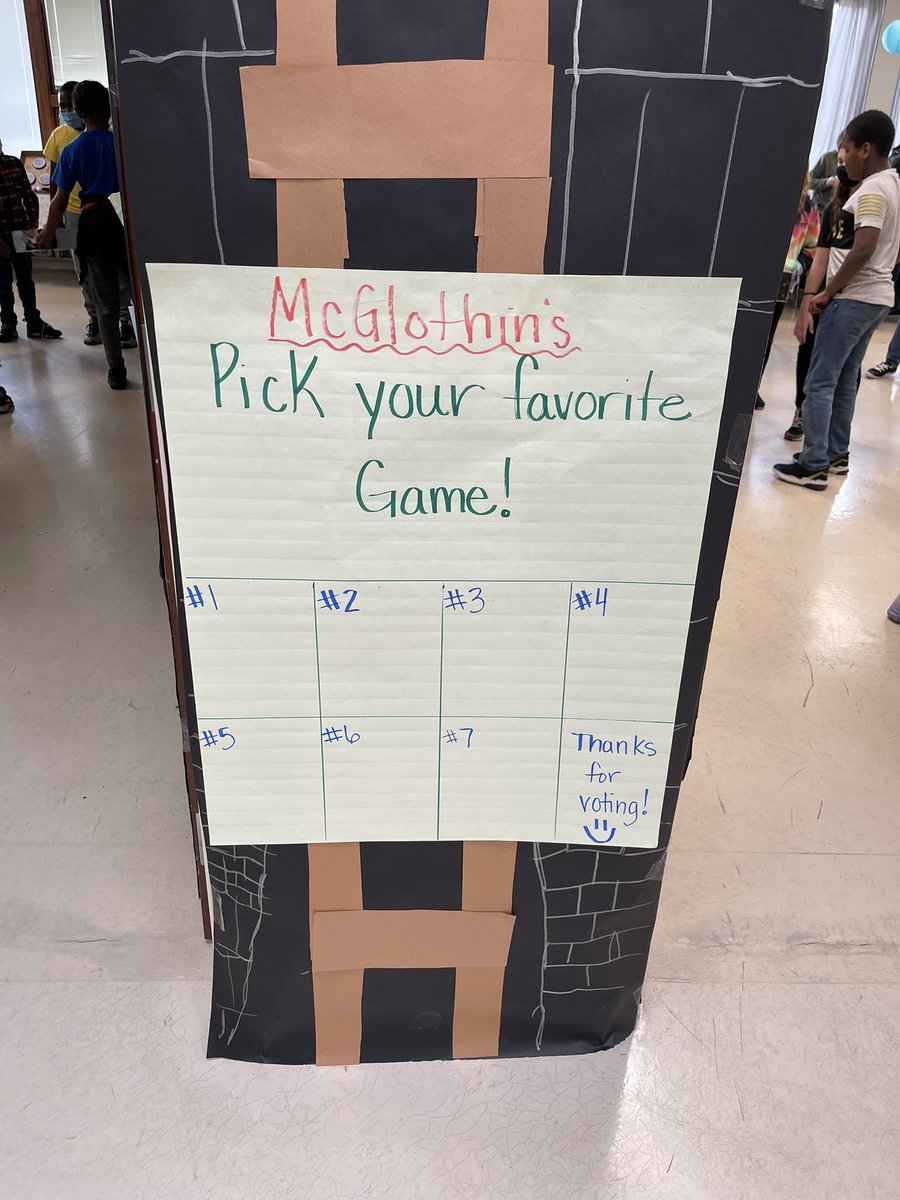 McGlothin's
Pick your favorite
Game!
#1 #2 #3 #4
#5 #6 #7 Thanks
for
voting!